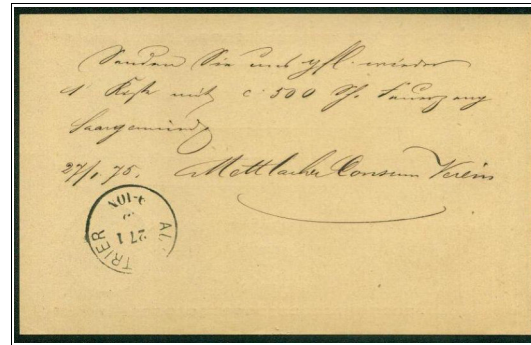 Senden Sie uns gfl. wieder
1 Kiste mit c. 500
Saargemünd
27/1. 75. Mettlacher Consum Verein
TRIER
27 1
9-10N